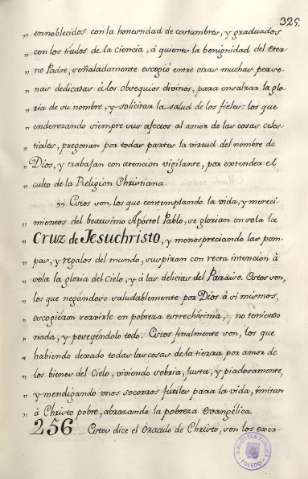 325.
" ennoblecidos con la honestidad de costumbres, y graduados
" con los titulos de la ciencia, á quienes la benignidad del Eter-
" no Padre, señaladamente escogió entre otras muchas perso-
" nas dedicadas á los obsequios divinos, para ensalzar la glo-
" ria de su nombre, y solicitar la salud de los fieles: los que
" enderezando siempre sus afectos al amor de las cosas celes-
" tiales, pregonan por todas partes la virtud del nombre de
" Dios, y trabajan con atencion vigilante, por extender el
" culto de la Religion Christiana.
" Estos son, los que contemplando la vida, y mereci-
" mientos del beatissimo Apóstol Pablo, se glorian en sola la
" Cruz de Jesuchristo, y menospreciando las pom-
" pas, y regalos del mundo, suspiran con recta intencion á
" sola la gloria del Cielo, y á las delicias del Paraíso. Estos son,
" los que negándose saludablemente por Dios á sí mismos,
" escogieron vivir en pobreza estrechísima, y no teniendo
" nada, y poseyéndolo todo. Estos finalmente son, los que
" habiendo dexado todas las cosas de la tierra, por amor de
" los bienes del Cielo, viviendo sobria, justa, y piadosamente,
" y mendigando unos socorros fútiles para la vida, imitan
" á Christo pobre, abrazando la pobreza Evangélica.
256 Estos dice el Oráculo de Christo, son los exca-